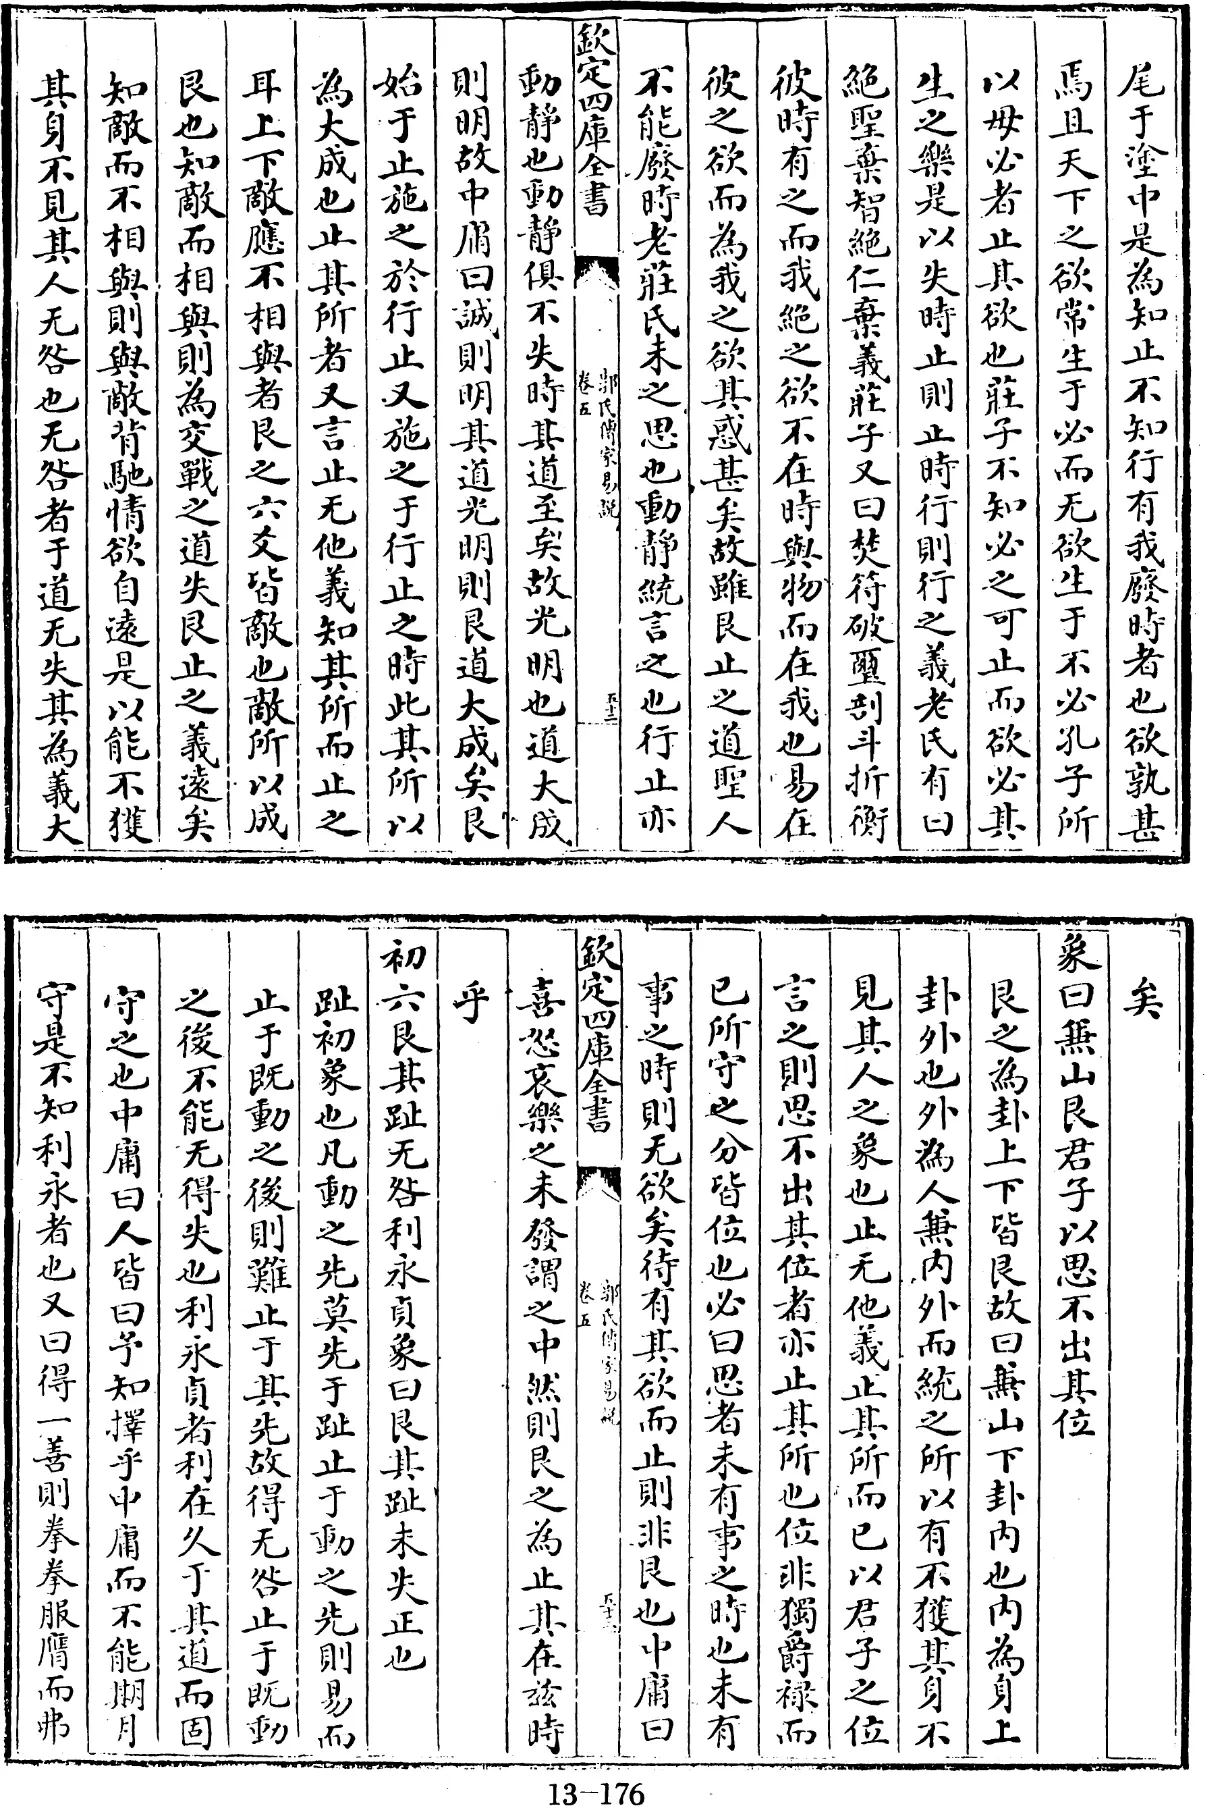 尾于塗中是為知止不知行有我廢時者也欲孰甚
焉且天下之欲常生于必而无欲生于不必孔子所
以毋必者止其欲也莊子不知必之可止而欲必其
生之樂是以失時止則止時行則行之義老氏有曰
絶聖棄智絶仁棄義莊子又曰焚符破璽剖斗折衡
彼時有之而我絶之欲不在時與物而在我也易在
彼之欲而為我之欲其惑甚矣故雖艮止之道聖人
不能廢時老莊氏未之思也動靜統言之也行止亦
欽定四庫全書
郭氏傳家易說
卷五
五十二
動靜也動靜俱不失時其道至矣故光明也道大成
則明故中庸曰誠則明其道光明則艮道大成矣艮
始于止施之於行止又施之于行止之時此其所以
為大成也止其所者又言止无他義知其所而止之
耳上下敵應不相與者艮之六爻皆敵也敵所以成
艮也知敵而相與則為交戰之道失艮止之義遠矣
知敵而不相與則與敵背馳情欲自遠是以能不獲
其身不見其人无咎也无咎者于道无失其為義大
矣
象曰兼山艮君子以思不出其位
艮之為卦上下皆艮故曰兼山下卦内也内為身上
卦外也外為人兼内外而統之所以有不獲其身不
見其人之象也止无他義止其所而已以君子之位
言之則思不出其位者亦止其所也位非獨爵禄而
已所守之分皆位也必曰思者未有事之時也未有
事之時則无欲矣待有其欲而止則非艮也中庸曰
欽定四庫全書
郭氏傳家易說
卷五
喜怒哀樂之未發謂之中然則艮之為止其在兹時
乎
初六艮其趾无咎利永貞象曰艮其趾未失正也
趾初象也凡動之先莫先于趾止于動之先則易而
止于既動之後則難止于其先故得无咎止于既動
之後不能无得失也利永貞者利在久于其道而固
守之也中庸曰人皆曰予知擇乎中庸而不能期月
守是不知利永者也又曰得一善則拳拳服膺而弗
13-176